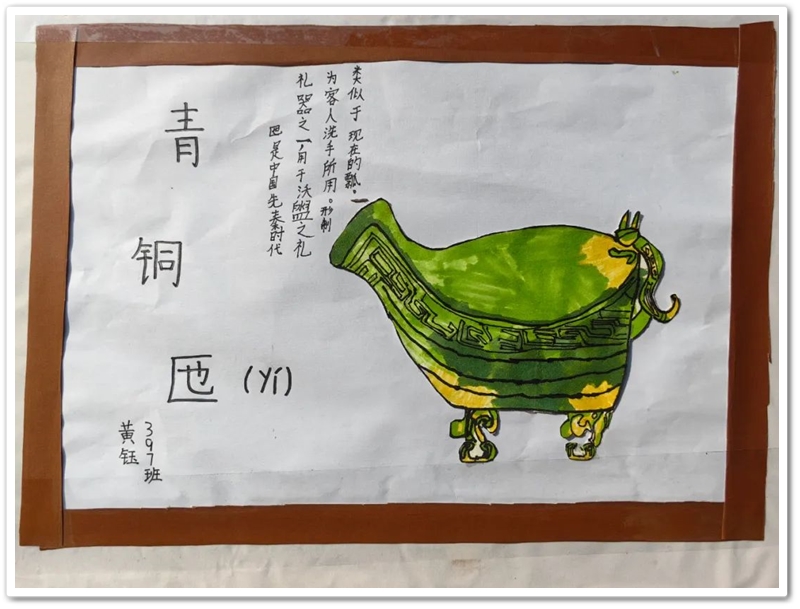 青
铜
匜 (yí)
匜是中国先秦时代
礼器之一,用于沃盥之礼
为客人洗手所用。形制
类似于现在的瓢。
397班
黄钰